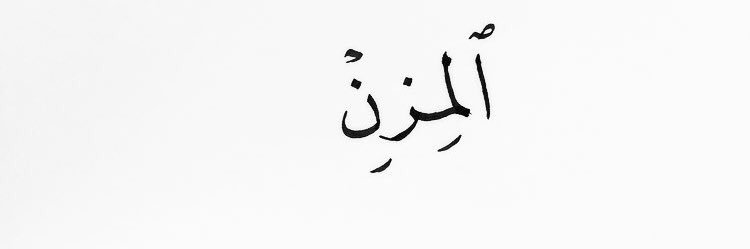 ٱلمِزِنْ